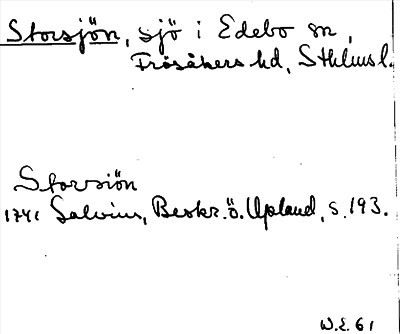 Storsjön, sjö i Edebo sn,
Frösåkers hd, Sthlms l.
Storsiön
1741 Salvius, Beskr. ö. Upland, s. 193.
W.E. 61